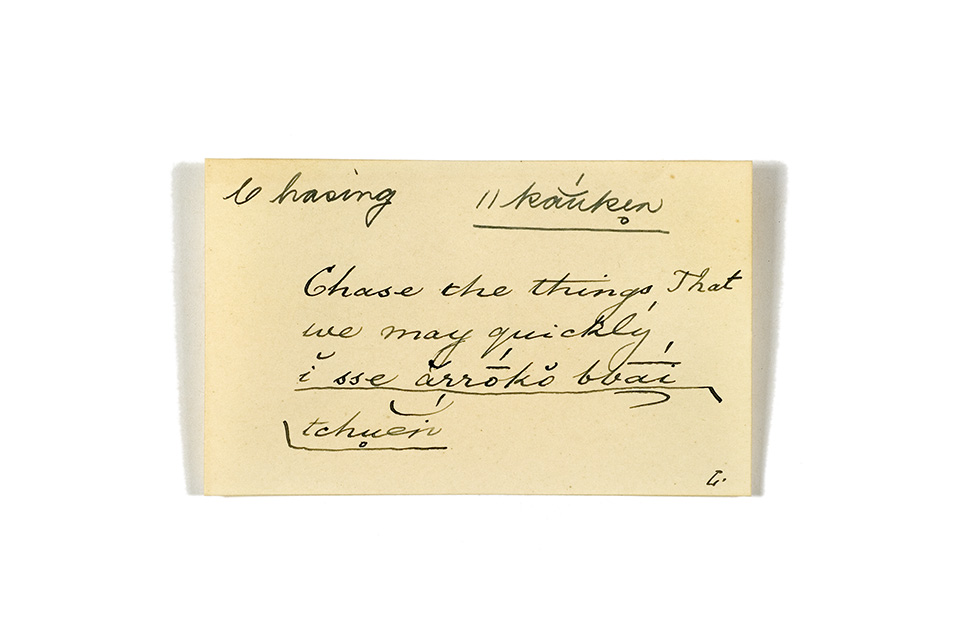 Chasing ǁkắukẹn
Chase the things, That
we may quickly,
ĭ sse ắrrṓkŏ bbāí
tchuẹ̆́ñ
L.